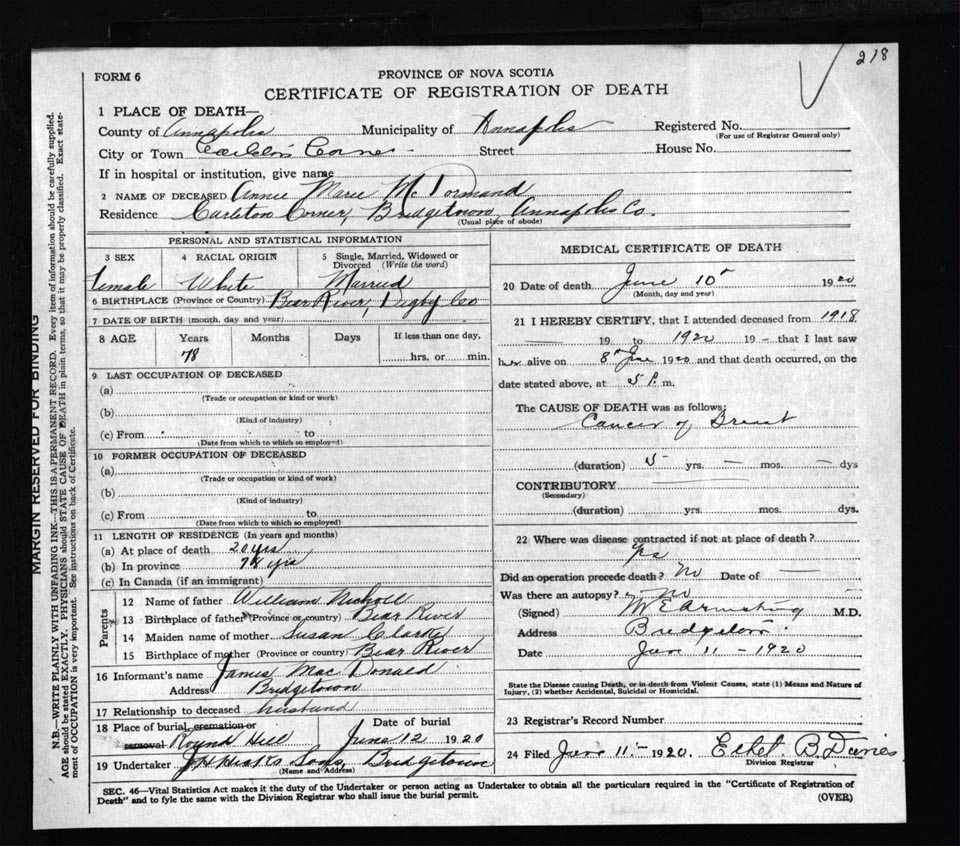 218
FORM 6
PROVINCE OF NOVA SCOTIA
CERTIFICATE OF REGISTRATION OF DEATH
1 PLACE OF DEATH—
County of Annapolis Municipality of Annapolis Registered No.
(For use of Registrar General only)
City or Town Street House No.
If in hospital or institution, give name
2 NAME OF DECEASED Annie Marie Mc Dormand
Residence Carleton Corner, Bridgetown, Annapolis Co.
(Usual place of abode)
PERSONAL AND STATISTICAL INFORMATION
3 SEX 4 RACIAL ORIGIN 5 Single, Married, Widowed or Divorced (Write the word)
Female White Married
6 BIRTHPLACE (Province or Country) Bear River, Digby Co
7 DATE OF BIRTH (month, day and year)
8 AGE Years Months Days If less than one day,
78 hrs. or min.
9 LAST OCCUPATION OF DECEASED
(a)
(Trade or occupation or kind of work)
(b)
(Kind of industry)
(c) From to
(Date from which to which so employed)
10 FORMER OCCUPATION OF DECEASED
(a)
(Trade or occupation or kind of work)
(b)
(Kind of industry)
(c) From to
(Date from which to which so employed)
11 LENGTH OF RESIDENCE (In years and months)
(a) At place of death 20 yrs
(b) In province 78 yrs
(c) In Canada (if an immigrant)
Parents
12 Name of father William Nicholl
13 Birthplace of father (Province or country) Bear River
14 Maiden name of mother Susan Clarke
15 Birthplace of mother (Province or country) Bear River
16 Informant's name James Mac Donald
Address Bridgetown
17 Relationship to deceased husband
18 Place of burial, cremation or Date of burial
removal Round Hill June 12 1920
19 Undertaker J H Hicks Sons, Bridgetown
(Name and Address)
MEDICAL CERTIFICATE OF DEATH
20 Date of death June 10 1920
(Month, day and year)
21 I HEREBY CERTIFY, that I attended deceased from 1918
— 19 to 1920 19 – that I last saw
her alive on 8 June 1920 and that death occurred, on the
date stated above, at 5 P. m.
The CAUSE OF DEATH was as follows:
Cancer of Breast
(duration) 5 yrs. — mos. — dys
CONTRIBUTORY
(Secondary)
(duration) yrs. mos. dys.
22 Where was disease contracted if not at place of death?
Did an operation precede death? No Date of —
Was there an autopsy? No
(Signed) M E Armstrong M.D.
Address Bridgetown
Date June 11 – 1920
State the Disease causing Death, or in death from Violent Causes, state (1) Means and Nature of
Injury, (2) whether Accidental, Suicidal or Homicidal.
23 Registrar's Record Number
24 Filed June 11 – 1920. Ethel B.
Division Registrar
SEC. 46—Vital Statistics Act makes it the duty of the Undertaker or person acting as Undertaker to obtain all the particulars required in the "Certificate of Registration of
Death" and to fyle the same with the Division Registrar who shall issue the burial permit. (OVER)
MARGIN RESERVED FOR BINDING
N.B.—WRITE PLAINLY WITH UNFADING INK—THIS IS A PERMANENT RECORD. Every item of information should be carefully supplied.
AGE should be stated EXACTLY. PHYSICIANS should STATE CAUSE OF DEATH in plain terms, so that it may be properly classified. Exact state-
ment of OCCUPATION is very important. See instructions on back of Certificate.